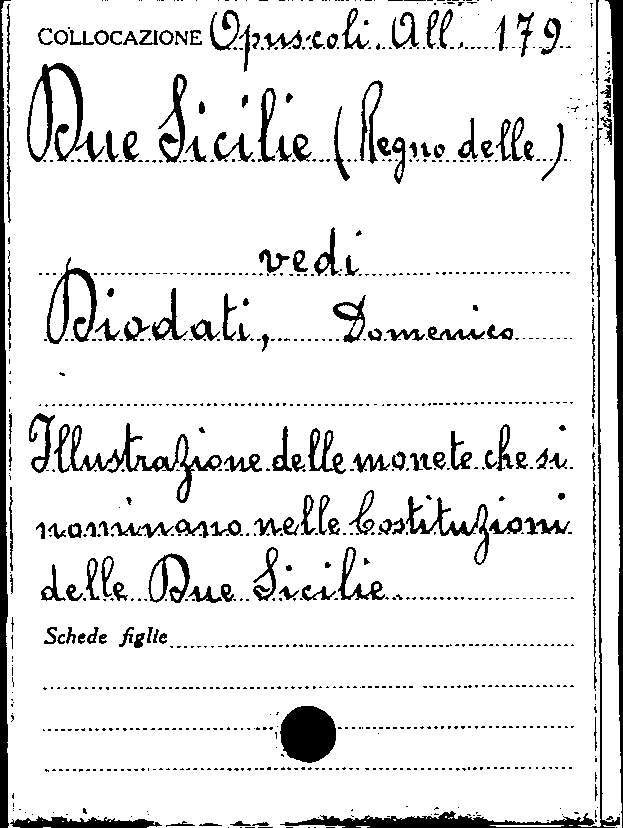 COLLOCAZIONE Opuscoli. All. 179
Due Sicilie (Regno delle)
vedi
Diodati, Domenico
Illustrazione delle monete che si
nominano nelle Costituzioni
delle Due Sicilie
Schede figlie